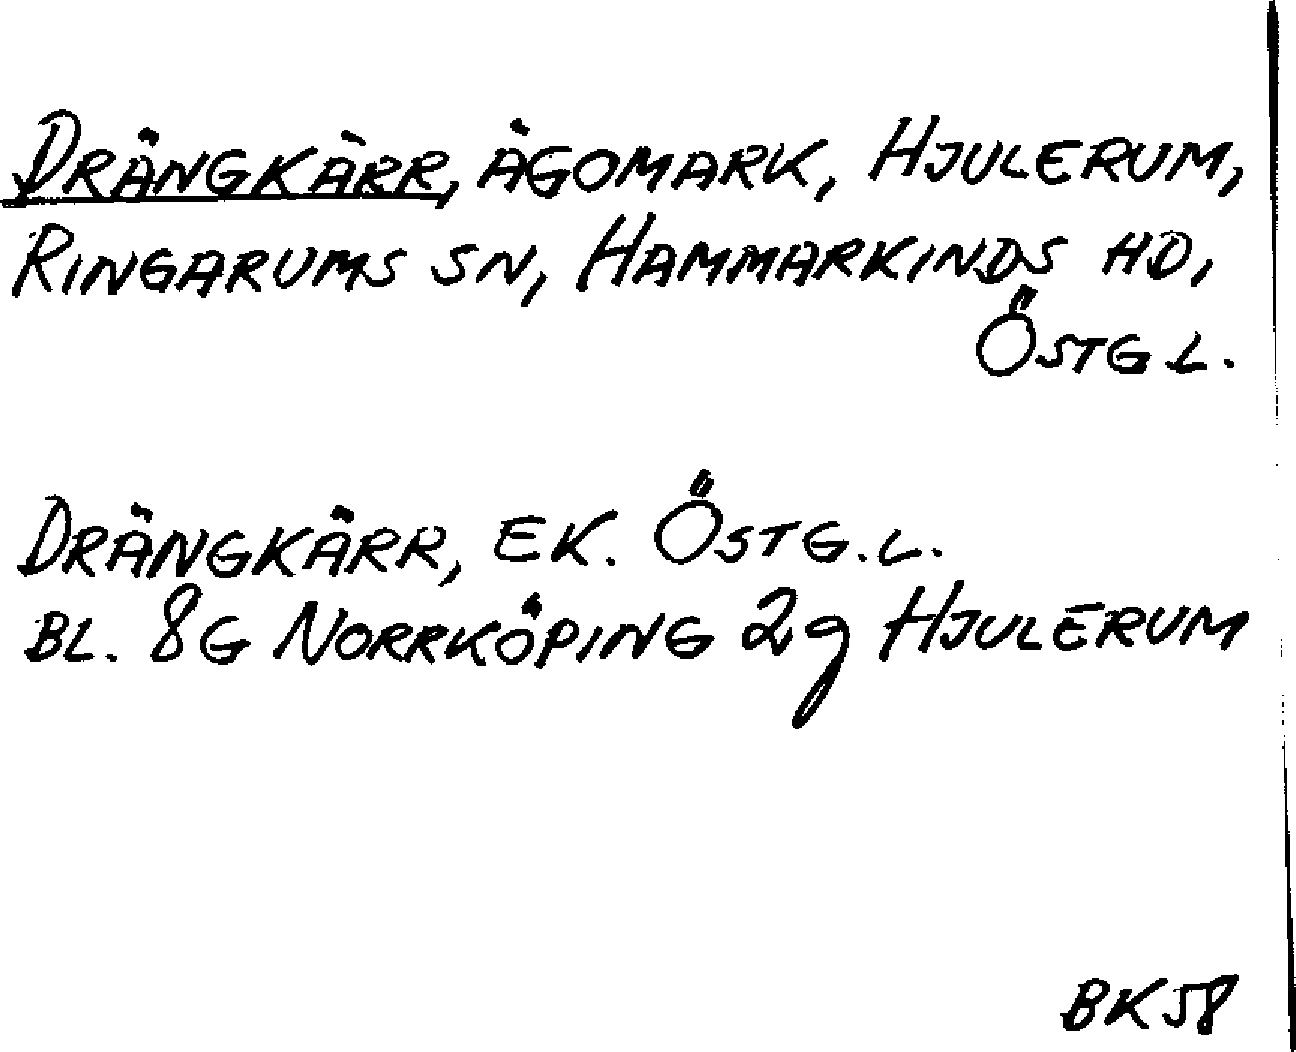 DRÄNGKÄRR, ÄGOMARK, HJULERUM,
RINGARUMS SN, HAMMARKINDS HD,
ÖSTG L.
DRÄNGKÄRR, EK. ÖSTG.L.
BL. 8G NORRKÖPING 2g HJULERUM
BK58